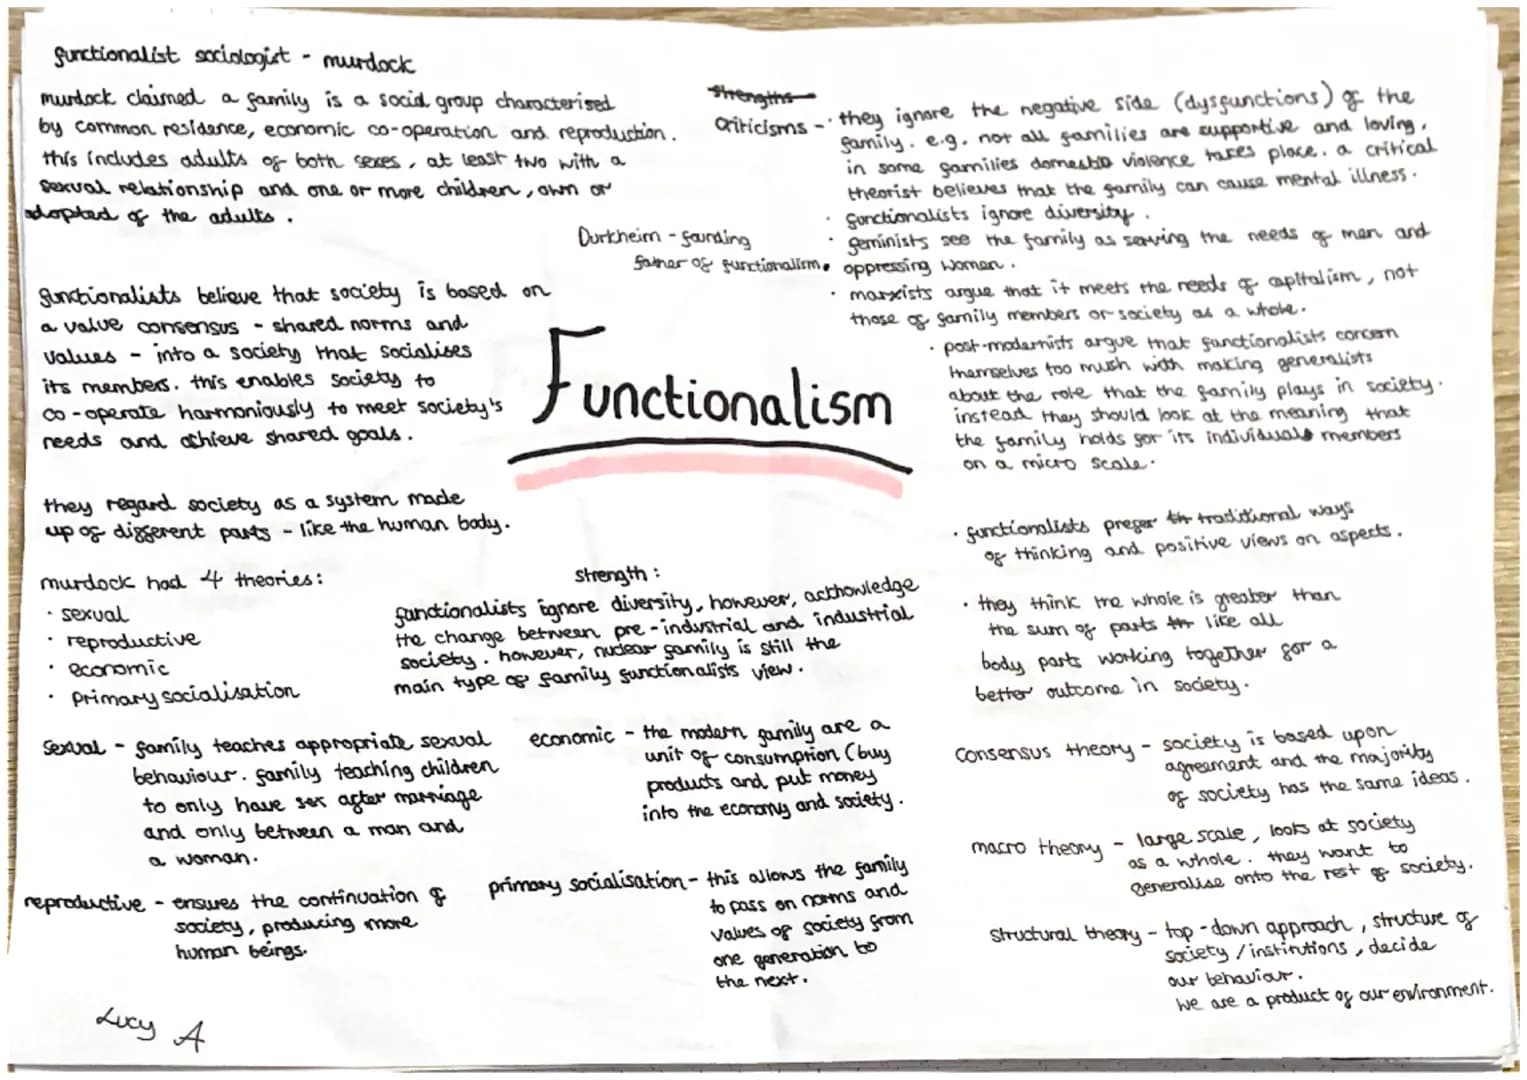 functionalist sociologist - murdock
murdock claimed a family is a social group characterised
by common residence, economic co-operation and reproduction.
this includes adults of both sexes, at least two with a
sexual relationship and one or more children, own or
adopted of the adults.
functionalists believe that society is based on
a value consensus - shared norms and
values - into a society that socialises
its members. this enables society to
co-operate harmoniously to meet society's
needs and achieve shared goals.
they regard society as a system made
up of different parts - like the human body.
murdock had 4 theories:
· sexual
· reproductive
· economic
· primary socialisation
sexual - family teaches appropriate sexual
behaviour. family teaching children
to only have sex after marriage
and only between a man and
a woman.
reproductive - ensures the continuation of
society, producing more
human beings.
Lucy A
Durkheim - founding
father of functionalism.
Functionalism
strength:
functionalists ignore diversity, however, acknowledge
the change between pre-industrial and industrial
society. however, nuclear family is still the
main type of family functionalists view.
economic - the modern family are a
unit of consumption (buy
products and put money
into the economy and society.
primary socialisation - this allows the family
to pass on norms and
values of society from
one generation to
the next.
strengths
criticisms - · they ignore the negative side (dysfunctions) of the
family. e.g. not all families are supportive and loving,
in some families domestic violence takes place. a critical
theorist believes that the family can cause mental illness.
· functionalists ignore diversity.
· feminists see the family as serving the needs of men and
oppressing women.
· marxists argue that it meets the needs of capitalism, not
those of family members or society as a whole.
· post-modernists argue that functionalists concern
themselves too mush with making generalists
about the role that the family plays in society.
instead they should look at the meaning that
the family holds for its individuals members
on a micro scale.
· functionalists prefer th traditional ways
of thinking and positive views on aspects.
· they think the whole is greater than
the sum of parts th like all
body parts working together for a
better outcome in society.
consensus theory - society is based upon
agreement and the majority
of society has the same ideas.
macro theory - large scale, looks at society
as a whole. they want to
generalise onto the rest of society.
structural theory - top-down approach, structure of
society / institutions, decide
our behaviour.
we are a product of our environment.